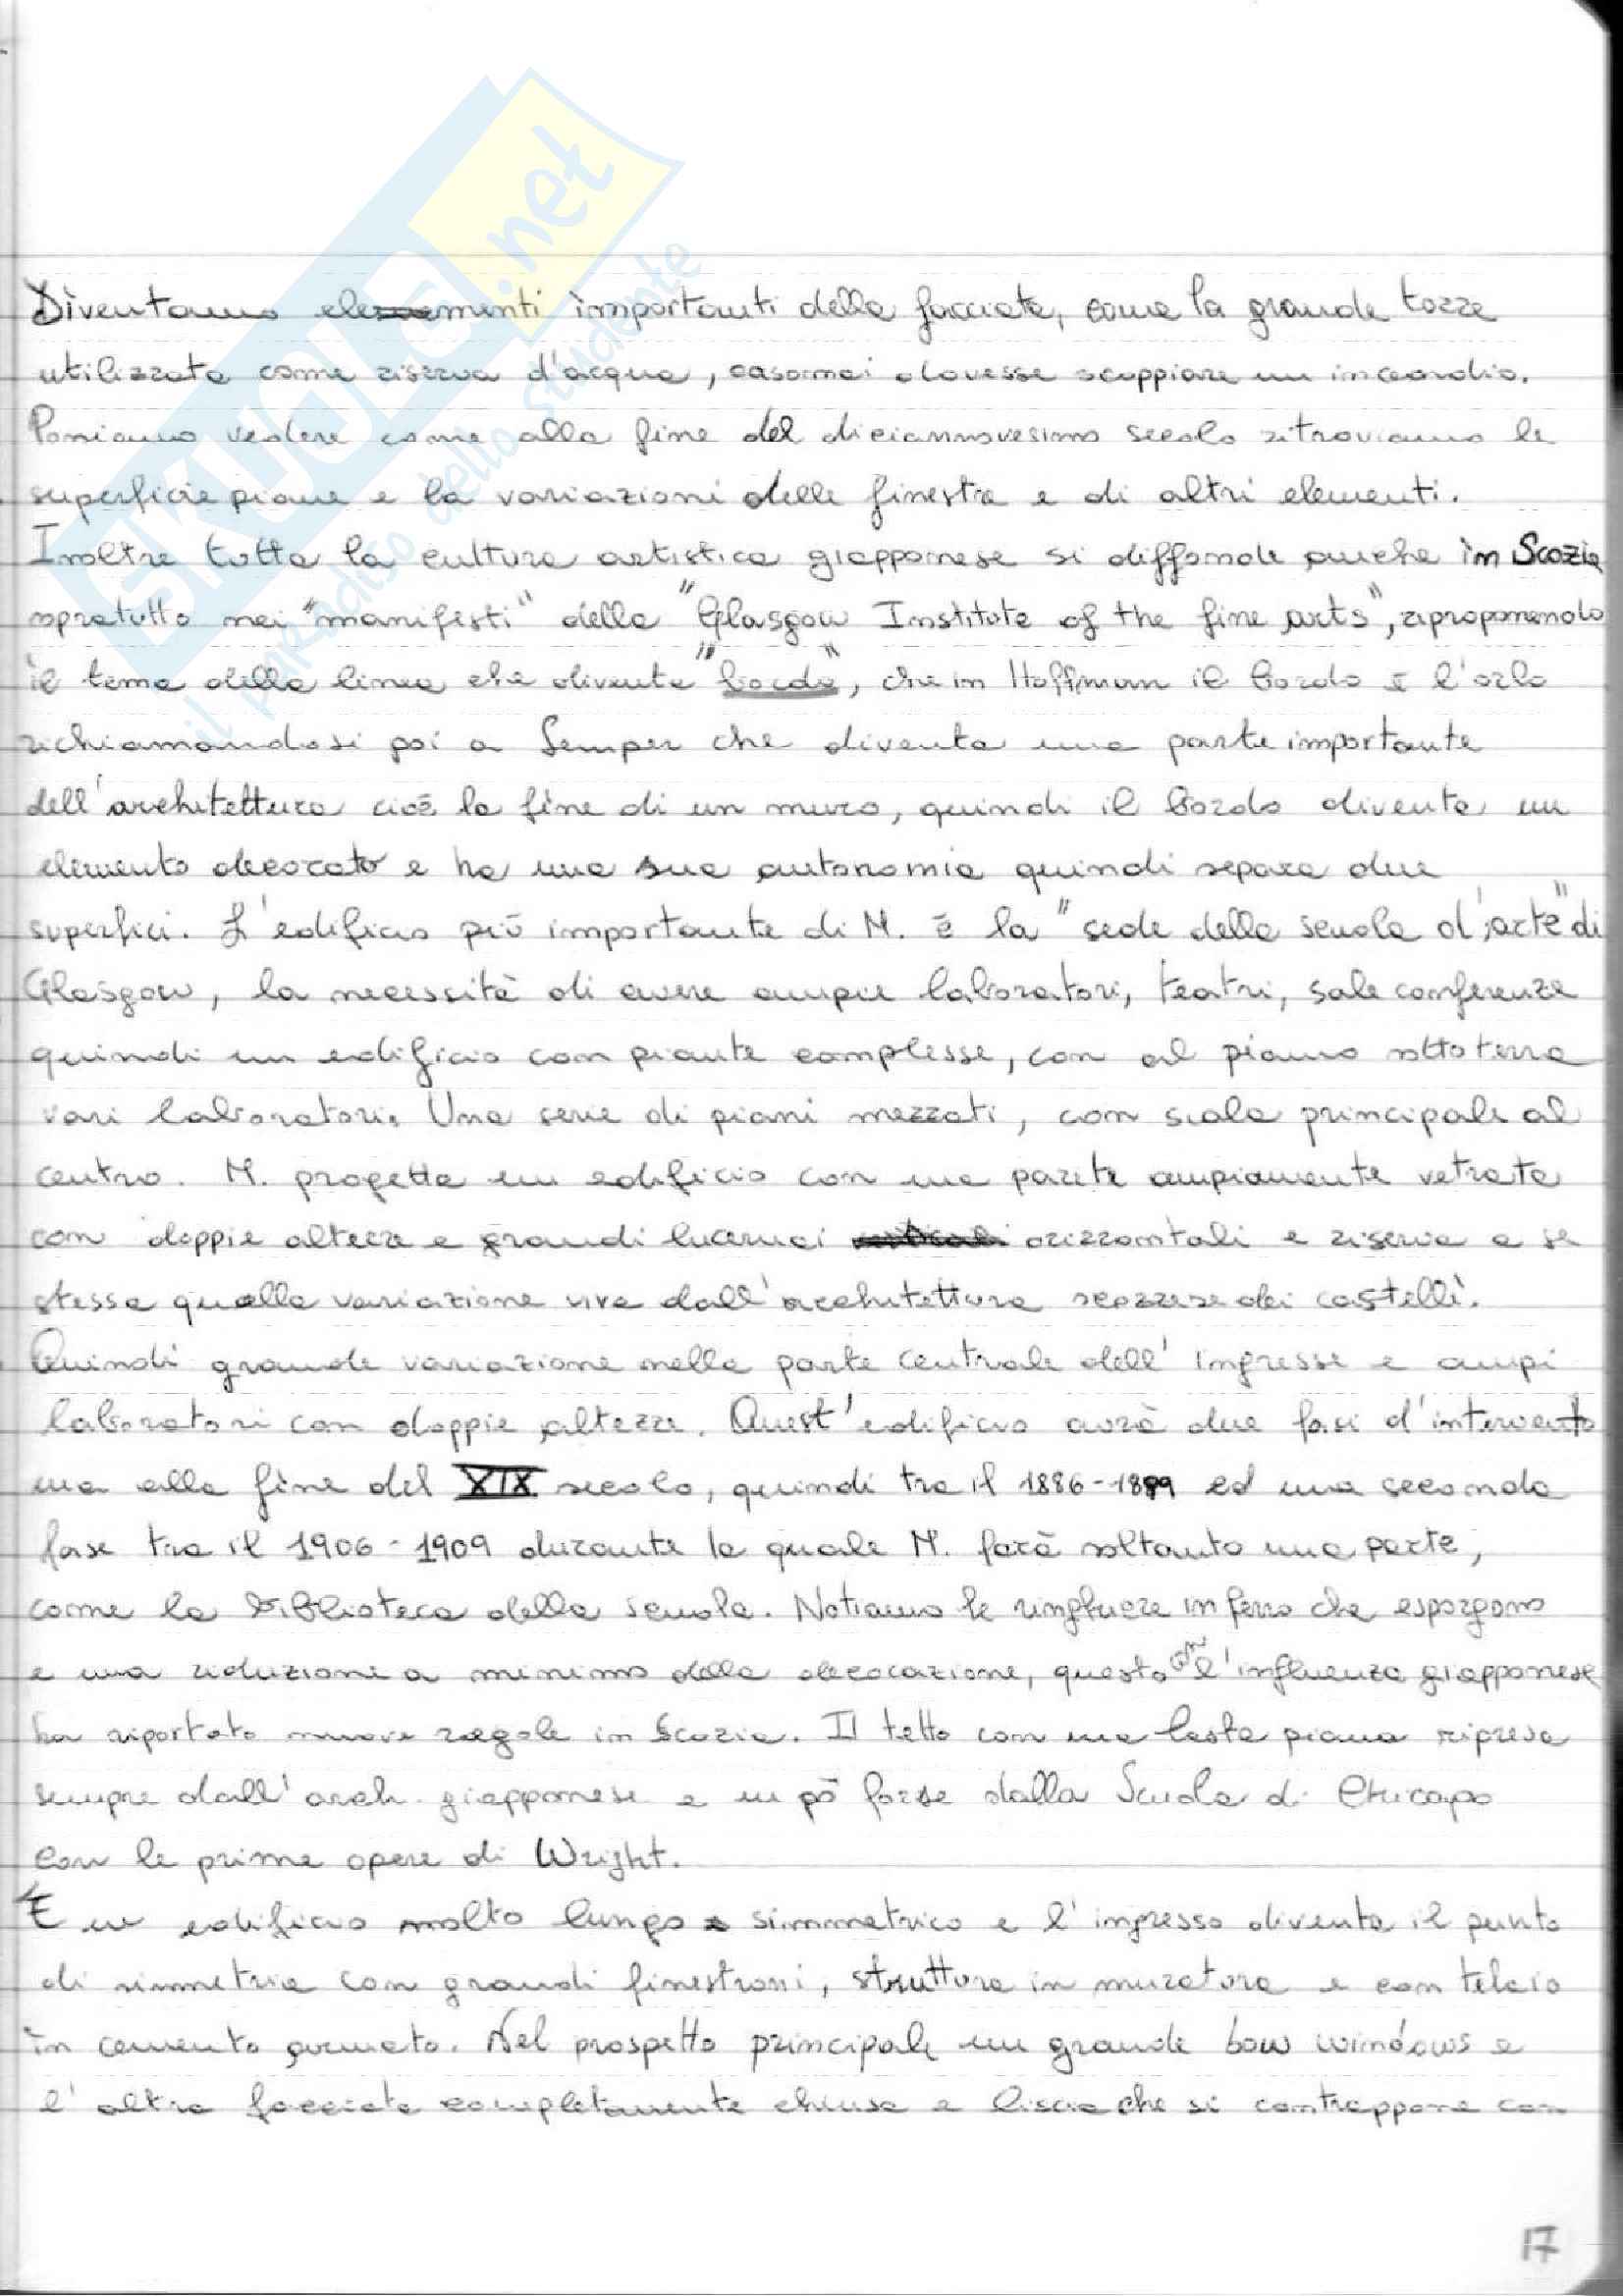 SKUOLA.net
il paradiso dello studente
Diventano elementi importanti della facciata, come la grande torre
utilizzata come riserva d'acqua, casomai dovesse scoppiare un incendio.
Possiamo vedere come alla fine del diciannovesimo secolo ritroviamo le
superficie piane e la variazioni delle finestre e di altri elementi.
Inoltre tutta la cultura artistica giapponese si diffonde anche in Scozia
sopratutto nei "manifesti" della "Glasgow Institute of the fine arts", riproponendo
il tema della linea che diventa "bordo", che in Hoffman il bordo è l'orlo
richiamandosi poi a Semper che diventa una parte importante
dell'architettura cioè la fine di un muro, quindi il bordo diventa un
elemento decorato e ha una sua autonomia quindi separa due
superfici. L'edificio più importante di M. è la "sede della scuola d'arte" di
Glasgow, la necessità di avere ampie laboratori, teatri, sale conferenze
quindi un edificio con piante complesse, con al piano sottoterra
vari laboratori. Una serie di piani mezzati, con scala principale al
centro. M. progetta un edificio con una parete ampiamente vetrata
con doppie altezze e grandi lucernai orizzontali e riserva a se
stessa quella variazione viva dall'architettura scozzese dei castelli.
Quindi grande variazione nella parte centrale dell'ingresse e ampi
laboratori con doppie altezze. Quest'edificio avrà due fasi d'intervento
una alla fine del XIX secolo, quindi tra il 1886-1899 ed una seconda
fase tra il 1906-1909 durante la quale M. farà soltanto una parte,
come la biblioteca della scuola. Notiamo le ringhiere in ferro che esporgono
e una riduzione a minimo della decorazione, questo l'influenza giapponese
ha riportato nuove regole in Scozia. Il tetto con una lastra piana ripresa
sempre dall'arch. giapponese e un pò forse dalla Scuola di Chicago
con le prime opere di Wright.
E un edificio molto lungo simmetrico e l'ingresso diventa il punto
di simmetria con grandi finestroni, struttura in muratura e con telaio
in cemento armato. Nel prospetto principale un grande bow windows e
l'altra facciata completamente chiusa e liscia che si contrappone con
17